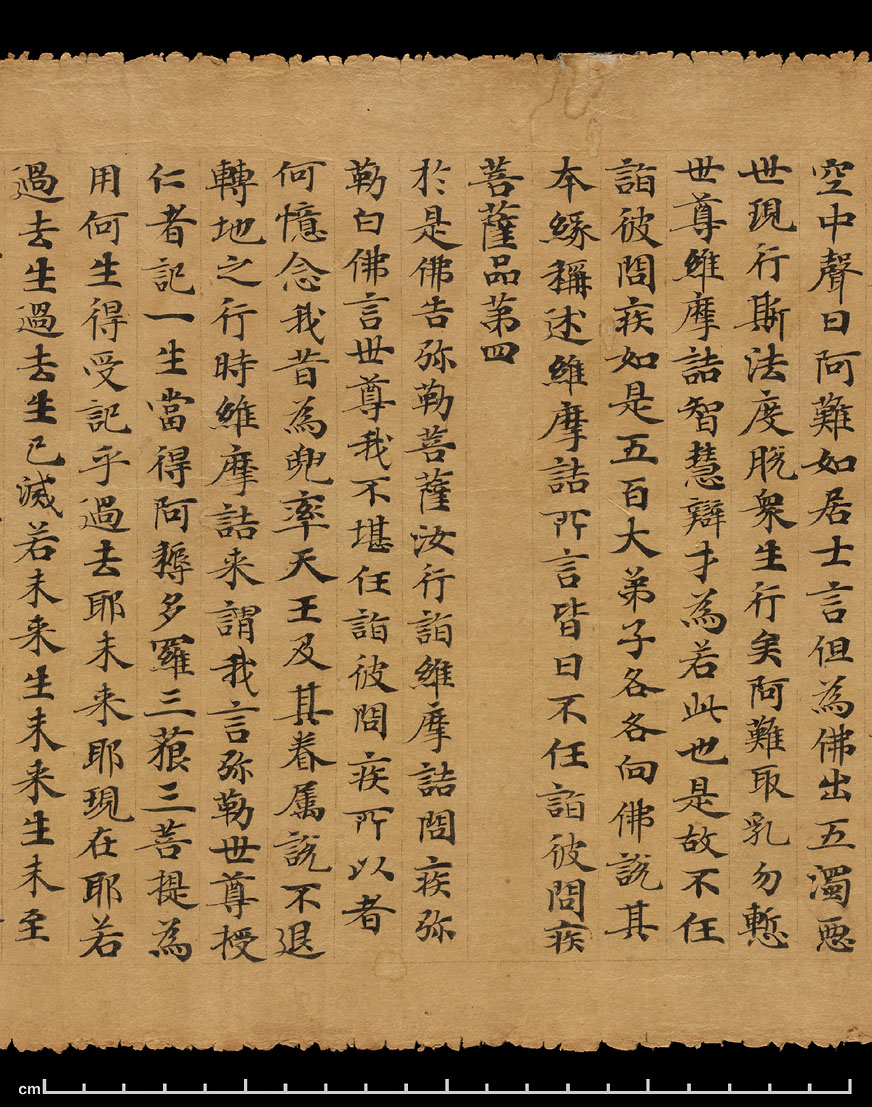 空中聲曰阿難如居士言但為佛出五濁惡
世現行斯法度脫衆生行矣阿難取乳勿慙
世尊維摩詰智慧辯才為若此也是故不任
詣彼問疾如是五百大弟子各各向佛說其
本緣稱述維摩詰所言皆曰不任詣彼問疾
菩薩品第四
於是佛告弥勒菩薩汝行詣維摩詰問疾弥
勒白佛言世尊我不堪任詣彼問疾所以者
何憶念我昔為兜率天王及其眷屬說不退
轉地之行時維摩詰来謂我言弥勒世尊授
仁者記一生當得阿耨多羅三藐三菩提為
用何生得受記乎過去耶未来耶現在耶若
過去生過去生已滅若未来生未来生未至
cm